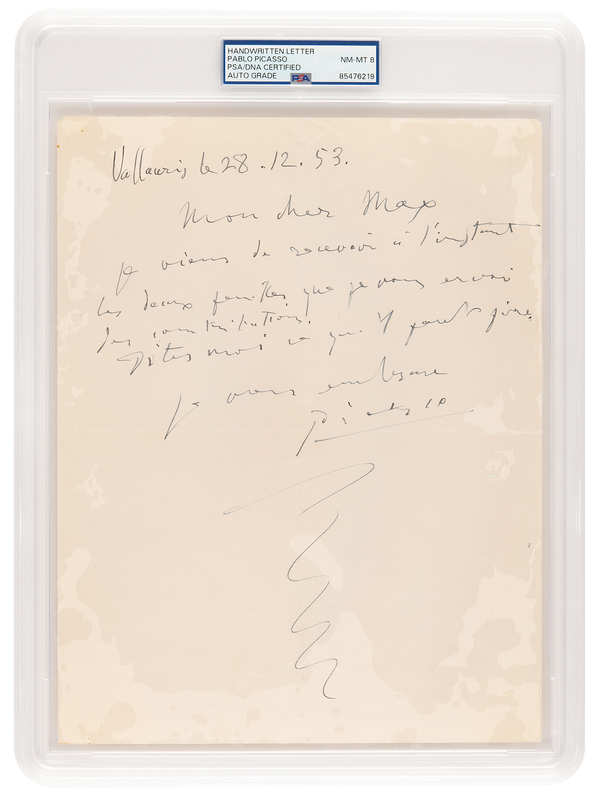 HANDWRITTEN LETTER
PABLO PICASSO NM-MT 8
PSA/DNA CERTIFIED
AUTO GRADE PSA 85476219
Vallauris le 28.12.53.
Mon cher Max
je viens de recevoir à l'instant
les deux feuilles que je vous envoi
des contributions.
Dites moi ce qu'il faut faire.
Je vous embrasse
Picasso